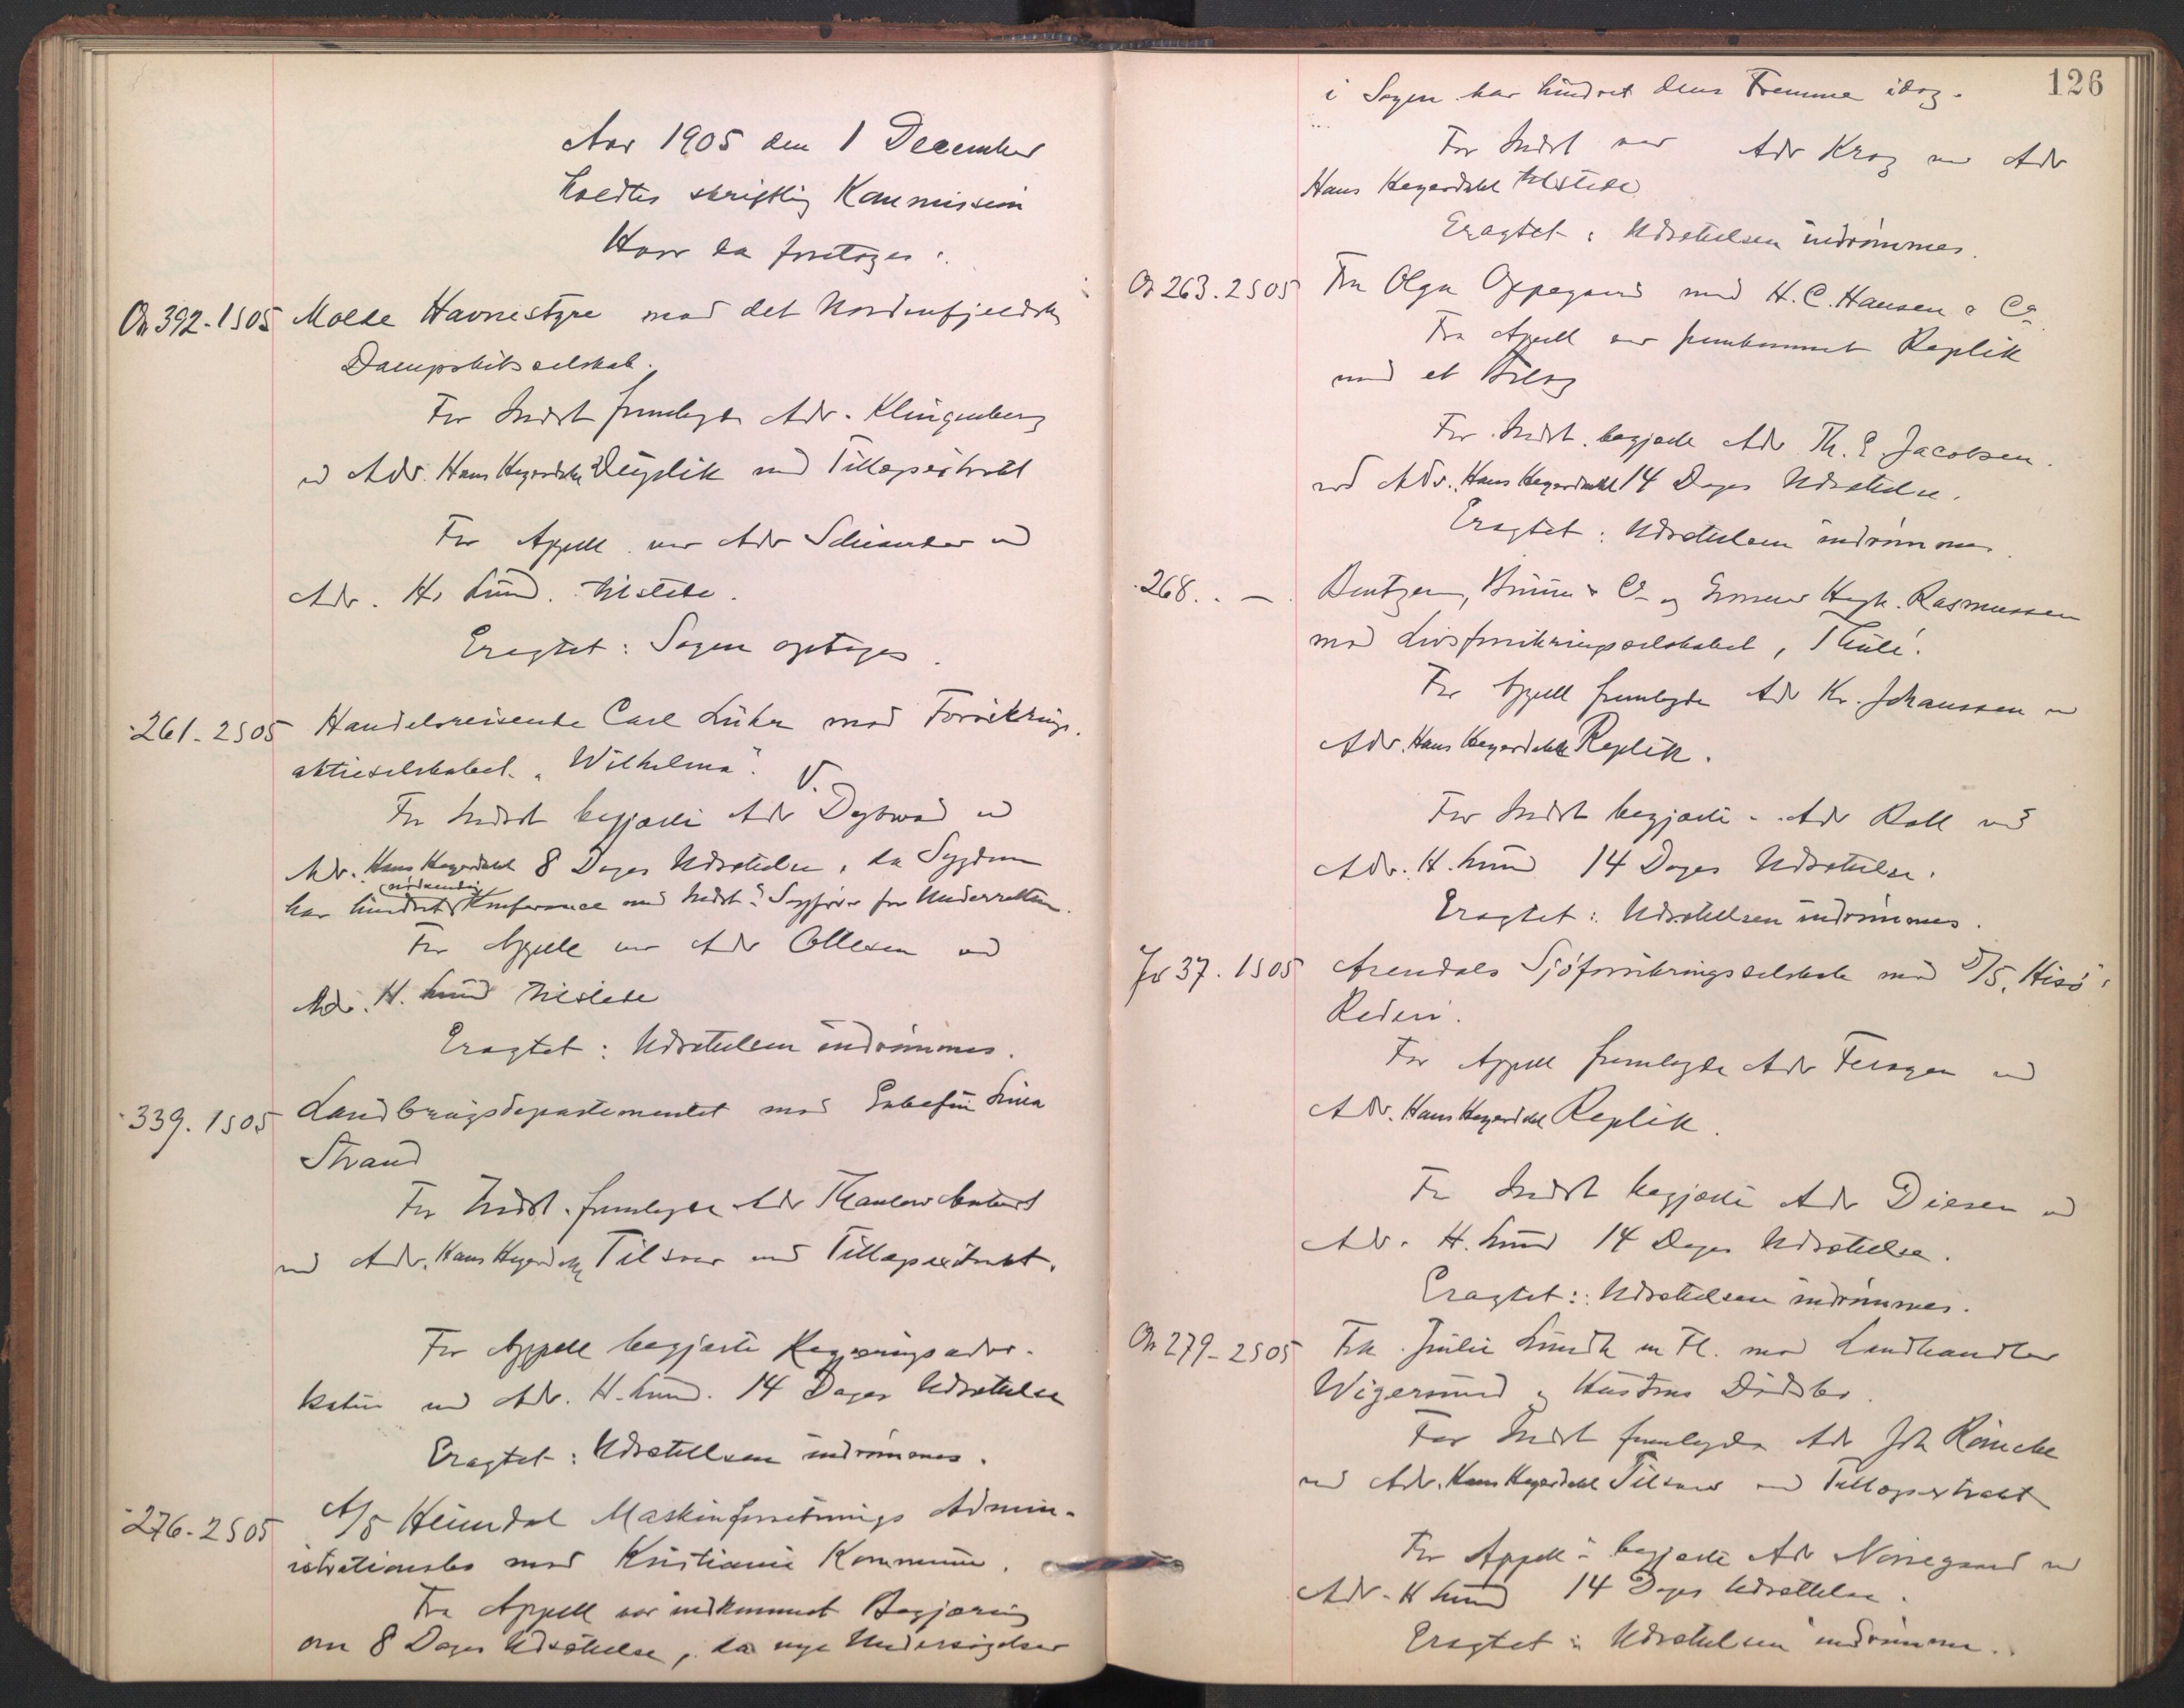 Aar 1905 den 1 December
holdtes skriftlig Kommission
Hvor da foretoges:
On 392-1S05 Molde Havnestyre mod det Nordenfjeldske
Dampskibsselskab.
For Indst fremlagde Adv. Klingenberg
ved Adv. Hans Heyerdahl Duplik med Tillægsextrakt
For Appell var Adv Schiander ved
Adv. H. Lund tilstede.
Eragtet: Sagen optages.
-261-2S05 Handelsreisende Carl Lühr mod Forsikrings-
aktieselskabet "Wilhelma".
For Indst begjærte Adv V. Dybwad ved
Adv. Hans Heyerdahl 8 Dages Udsættelse, da Sygdom
har hindret nødvendig Konference med Indst's Sagfører for Underretten.
For Appell var Adv Ollesen ved
Adv. H. Lund tilstede
Eragtet: Udsættelsen indrømmes.
-339.1S05 Landbrugsdepartementet mod Enkefru Lina
Strand
For Indst. fremlagde Adv Thaulow
ved Adv. Hans Heyerdahl Tilsvar med Tillægsextrakt.
For Appell begjærte Regjeringsadvo-
katen ved Adv. H. Lund. 14 Dages Udsættelse
Eragtet: Udsættelsen indrømmes.
-276-2S05 A/S Heimdal Maskinforretnings Admin-
istrationsbo mod Kristiania Kommune.
Fra Appell var indkommet Begjæring
om 8 Dages Udsættelse, da nye Undersøgelser
126
i Sagen har hindret dens Fremme idag.
For Indst var Adv Krag ved Adv
Hans Heyerdahl tilstede
Eragtet: Udsættelsen indrømmes.
On 263.2S05 Fru Olga Oppegaard mod H. C. Hansen & Co.
Fra Appell var fremkommet Replik
med et Bilag
For Indst. begjærte Adv Th. E. Jacobsen
ved Adv. Hans Heyerdahl 14 Dages Udsættelse.
Eragtet: Udsættelsen indrømmes.
-268. - Bentzen, & Co og Hagb. Rasmussen
mod Livsforsikringsselskabet "Thule".
For Appell fremlagde Adv Kr. Johanssen ved
Adv. Hans Heyerdahl Replik.
For Indst begjærte Adv Roll ved
Adv. H. Lund 14 Dages Udsættelse.
Eragtet: Udsættelsen indrømmes.
Fv 37.1S05 Arendals Sjöforsikringsselskab mod D/S "Hisö"s
Rederi.
For Appell fremlagde Adv Feragen ved
Adv. Hans Heyerdahl Replik.
For Indst begjærte Adv Diesen ved
Adv. H. Lund 14 Dages Udsættelse.
Eragtet: Udsættelsen indrømmes.
On 279-2S05 Frk. Julie Lundh m Fl. mod Landhandler
Wigersund og Hustrus Dödsbo.
For Indst fremlagde Adv Joh Rönneke
ved Adv. Hans Heyerdahl Tilsvar med Tillægsextrakt
For Appell begjærte Adv Nörregaard ved
Adv. H Lund 14 Dages Udsættelse.
Eragtet: Udsættelsen indrømmes.